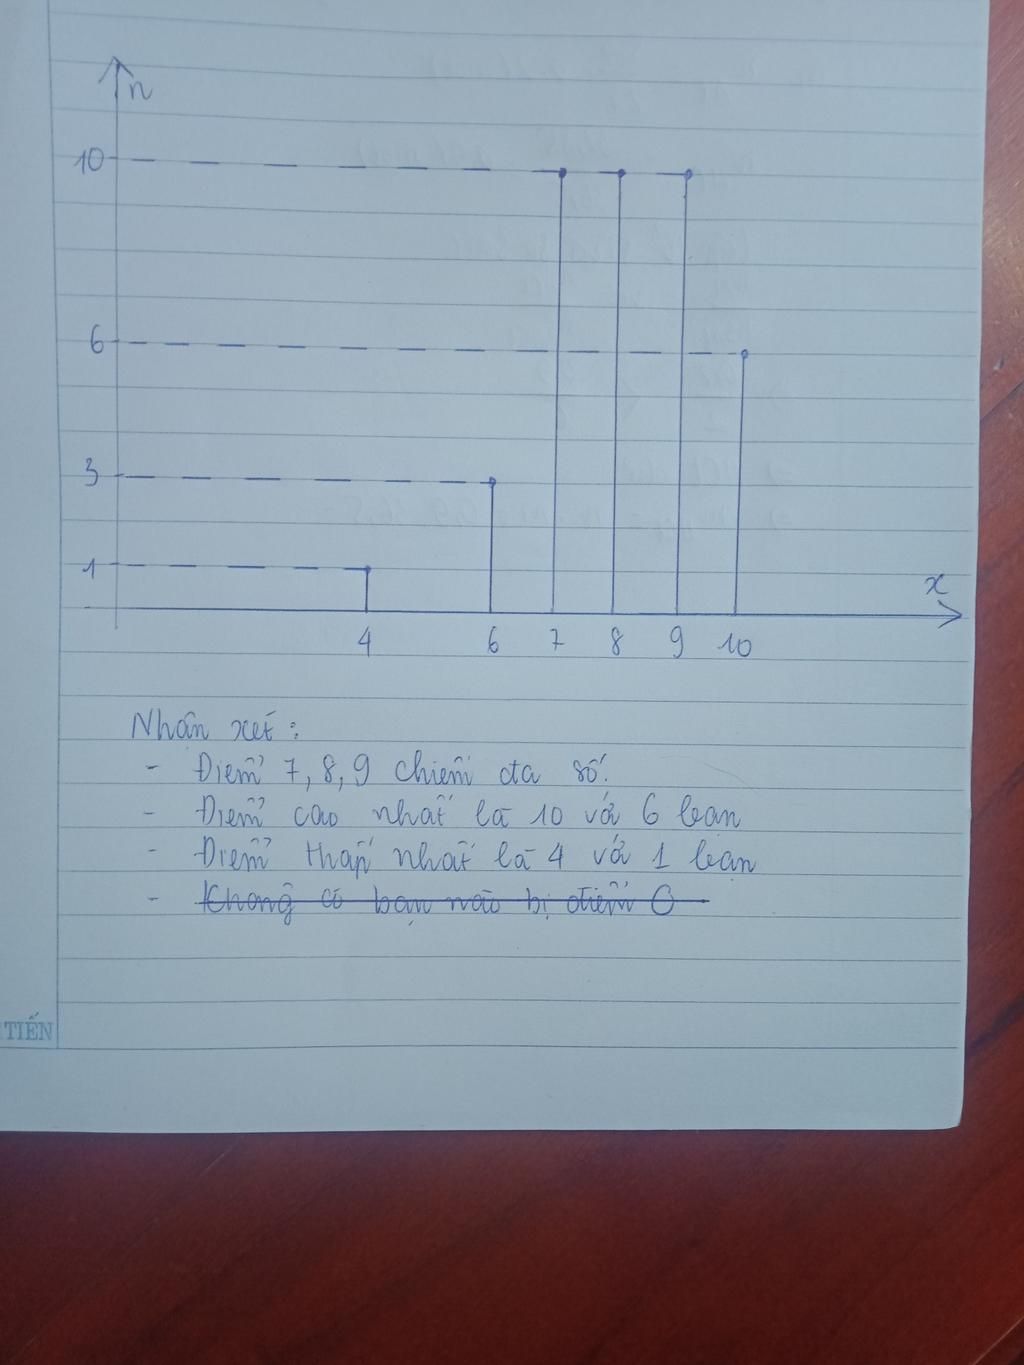 n
10
6
3
1
x
4 6 7 8 9 10
Nhận xét:
- Điểm 7, 8, 9 chiếm đa số.
- Điểm cao nhất là 10 với 6 bạn
- Điểm thấp nhất là 4 với 1 bạn
- Không có bạn nào bị điểm 0
TIẾN